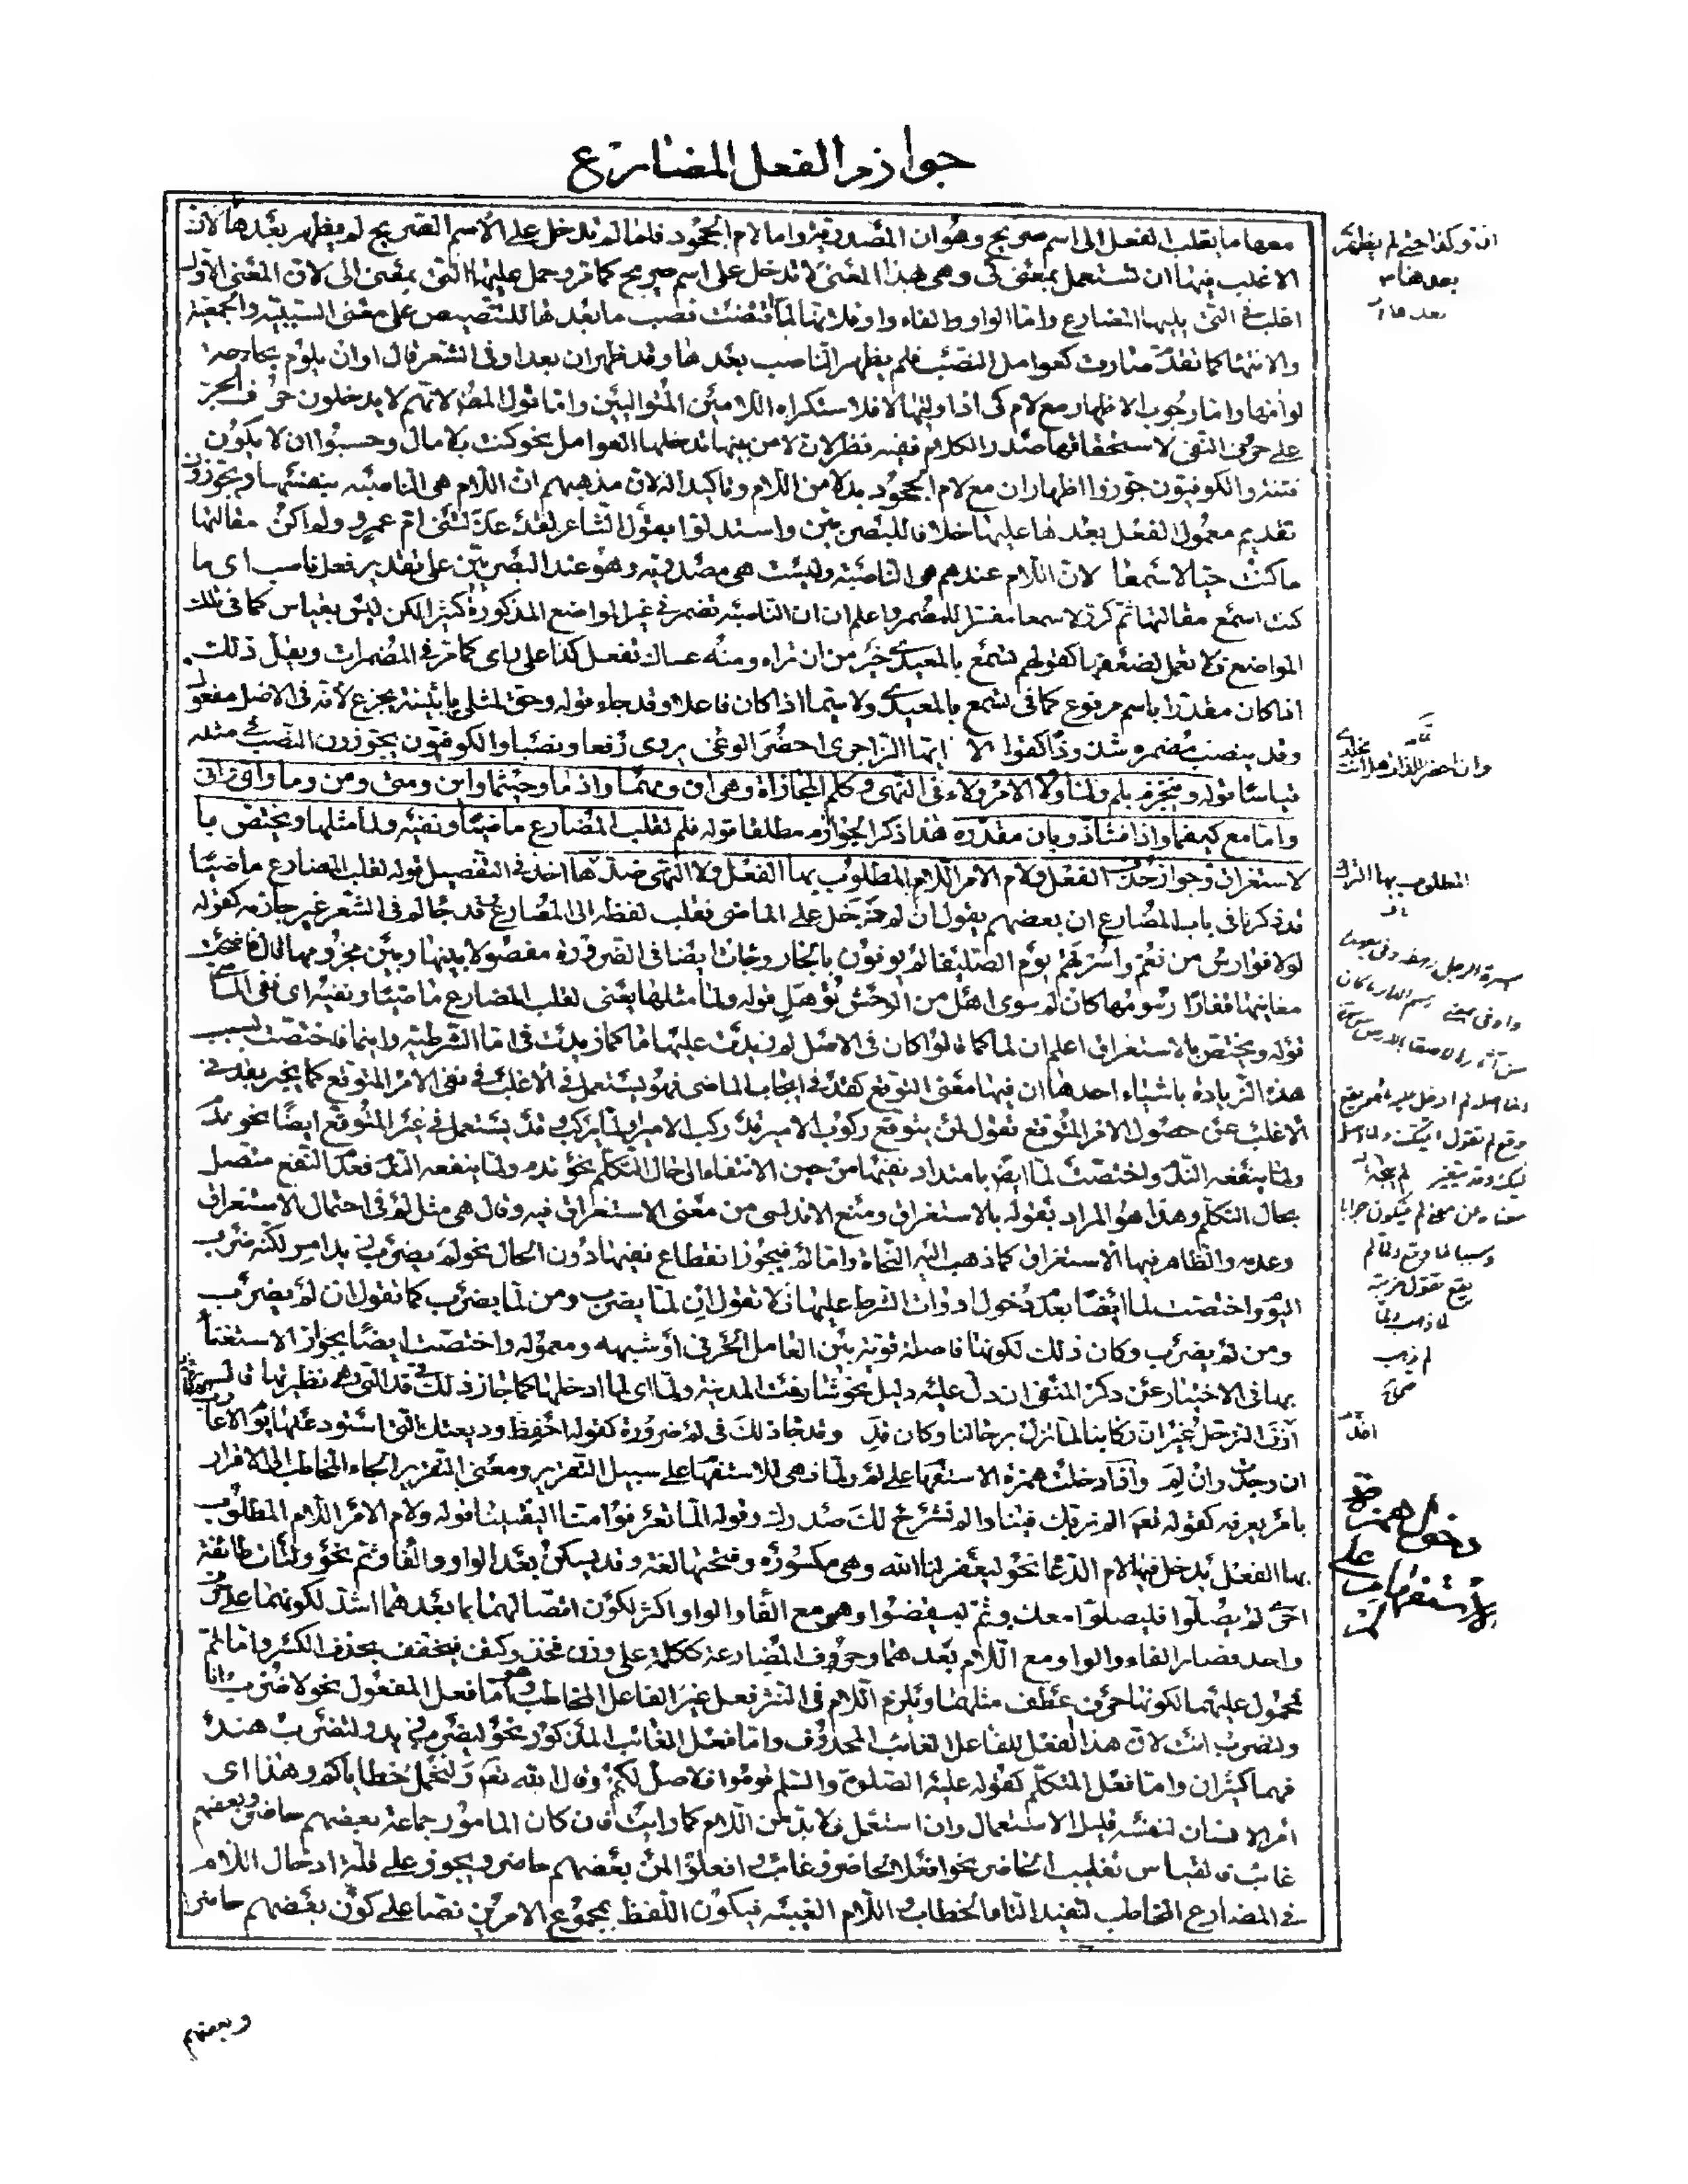 جوازم الفعل المضارع
معها ما يقلب الفعل الى اسم صريح وهو ان المصدرية واما لام الجحود فلما لم تدخل على الاسم الصريح لم يظهر بعدها لان
الاغلب فيها ان تستعمل بمعنى كى وهى بهذا المعنى لا تدخل على اسم صريح كما مر وحمل عليها التى بمعنى الى لان المعنى الاول
اغلب فى التى يليها المضارع واما الواو والفاء واو فلانها لما اقتضت نصب ما بعدها للتنصيص على معنى السببية والجمعية
والانتهاء كما تقدم صارت كعوامل النصب فلم يظهر الناصب بعدها وقد ظهر ان بعد او فى الشعر قال او ان يلوم بحاجة
لوامها واما وجوب الاظهار مع لام كى اذا وليها لا فلاستكراه اللامين المتواليين واما قول المص لانهم لا يدخلون حرف الجر
على حرف النفى لاستحقاقها صدر الكلام ففيه نظر لان لا من بينها تدخلها العوامل نحو كنت بلا مال وحسبوا ان لا يكون
فتنة والكوفيون جوزوا اظهار ان مع لام الجحود بدلا من اللام وتاكيدا لان مذهبهم ان اللام هى الناصبة بنفسها ويجوزون
تقديم معمول الفعل بعدها عليها خلافا للبصريين واستدلوا بقول الشاعر لقد عذلتنى ام عمرو ولم اكن مقالتها
ما كنت حيا لاسمعا لان اللام عندهم هى الناصبة وليست هى مصدرية وهو عند البصريين على تقدير فعل ناصب اى ما
كنت اسمع مقالتها ثم كرر لاسمعا مفسرا للمضمر واعلم ان ان الناصبة تضمر فى غير المواضع المذكورة كثيرا لكن ليس بقياس كما فى تلك
المواضع فلا تعمل لضعفها كقولهم تسمع بالمعيدى خير من ان تراه ومنه عساك تفعل كذا على راى كما مر فى المضمرات ويقل ذلك
اذا كان مقدرا باسم مرفوع كما فى تسمع بالمعيدى ولا سيما اذا كان فاعلا وقد جاء قوله وحق لمثلى يا بثينة يجزع لانه فى الاصل مفعول
وقد ينصب مضمرة شذوذا كقوله الا ايهذا الزاجرى احضر الوغى يروى رفعا ونصبا والكوفيون يجوزون النصب فى مثله
قياسا قوله وينجزم بلم ولما ولام الامر ولاء فى النهى وكلم المجازاة وهى ان ومهما واذ ما وحيثما واين ومتى ومن وما واى وانى
واما مع كيفما واذا فشاذ وبان مقدرة هذا ذكر الجوازم مطلقا قوله فلم لقلب المضارع ماضيا ونفيه ولما مثلها ويختص با
لاستغراق وجواز حذف الفعل ولام الامر اللام المطلوب بها الفعل ولا النهى ضدها اخذ فى التفصيل قوله لقلب المضارع ماضيا
قد ذكرنا فى باب المضارع ان بعضهم يقول ان لم دخل على الماضى فقلب لفظه الى المضارع وقد جاء لم فى الشعر غير جازمة كقوله
لولا فوارس من نعم واسرتهم يوم الصليفاء لم يوفون بالجار وجاءت ايضا فى الضرورة مفصولا بينها وبين مجزومها قال فاضحت
مغانيها قفارا رسومها كان لم سوى اهل من الوحش تؤهل قوله ولما مثلها يعنى لقلب المضارع ماضيا ونفيه اى نفى الماضى
قوله ويختص بالاستغراق اعلم ان لما كما قالوا كان فى الاصل لم زيدت عليها ما كما زيدت فى اما الشرطية واينما فاختصت بسبب
هذه الزيادة باشياء احدها ان فيها معنى التوقع كقد فى ايجاب الماضى فهو يستعمل فى الاغلب فى نفى الامر المتوقع كما يخبر بقد فى
الاغلب عن حصول الامر المتوقع تقول لمن يتوقع ركوب الامير قد ركب الامير او لما يركب وقد يستعمل فى غير المتوقع ايضا نحو ندم
ولما ينفعه الندم واختصت لما ايضا بامتداد نفيها من حين الانتفاء الى حال التكلم نحو ندم ولما ينفعه الندم فعدم النفع متصل
بحال التكلم وهذا هو المراد بقوله بالاستغراق ومنع الاندلسى من معنى الاستغراق فيه وقال هى مثل لم فى احتمال الاستغراق
وعدمه والظاهر فيها الاستغراق كما ذهب اليه النحاة واما لم فيجوز انقطاع نفيها دون الحال نحو لم يضرب زيد امس لكنه ضرب
اليوم واختصت لما ايضا بعدم دخول ادوات الشرط عليها فلا تقول ان لما يضرب ومن لما يضرب كما تقول ان لم يضرب
ومن لم يضرب وكان ذلك لكونها فاصلة قوية بين العامل الحرفى او شبهه ومعموله واختصت ايضا بجواز الاستغناء
بها فى الاختيار عن ذكر المنفى ان دل عليه دليل نحو شارفت المدينة ولما اى لما ادخلها كما جاز ذلك فى قد التى هى نظيرتها قال
ازف الترحل غير ان ركابنا لما تزل برحالنا وكان قد وقد جاء ذلك فى لم ضرورة كقوله احفظ وديعتك التى استودعتها يوم الاعا
ان وجدت وان لم واذا دخلت همزة الاستفهام على لم ولما فهى للاستفهام على سبيل التقرير ومعنى التقرير الجاء المخاطب الى الاقرار
بامر يعرفه كقوله تعم الم نربك فينا والم نشرح لك صدرك وقوله الما تعرفوا منا اليقينا قوله ولام الامر اللام المطلوب
بها الفعل يدخل فيها لام الدعاء نحو ليغفر لنا الله وهى مكسورة وفتحها لغة وقد يسكن بعد الواو والفاء وثم نحو ولتات طائفة
اخرى لم يصلوا فليصلوا معك وثم ليقضوا وهو مع الفاء والواو اكثر لكون اتصالهما بما بعدهما اشد لكونهما على حرف
واحد فصار الفاء والواو مع اللام بعدهما وحرف المضارعة ككلمة على وزن فخذ وكتف فتخفف بحذف الكسر واما ثم
فمحمول عليهما لكونها حرف عطف مثلهما ويلزم اللام فى النثر فعل غير الفاعل المخاطب وهو اما فعل المفعول نحو لاضرب انا
ولتضرب انت لان هذا الفعل للفاعل الغائب المحذوف واما فعل الغائب المذكور نحو ليضرب زيد ولتضرب هند
فهما كثيران واما فعل المتكلم كقوله عليه الصلوة والسلم قوموا فلاصل لكم وقال الله تعم ولنحمل خطاياكم وهذا اى
امر الانسان لنفسه قليل الاستعمال وان استعمل فلا بد من اللام كما رايت فان كان المامور جماعة بعضهم حاضر وبعضهم
غائب فالقياس تغليب الحاضر نحو افعلا لحاضر وغائب وافعلوا لمن بعضهم حاضر ويجوز على قلة ادخال اللام
فى المضارع المخاطب لتفيد التاء الخطاب واللام الغيبة فيكون اللفظ بمجموع الامرين نصا على كون بعضهم حاضرا
وبعضهم
المطلوب بها الترك
دخول همزة
الاستفهام على
لم